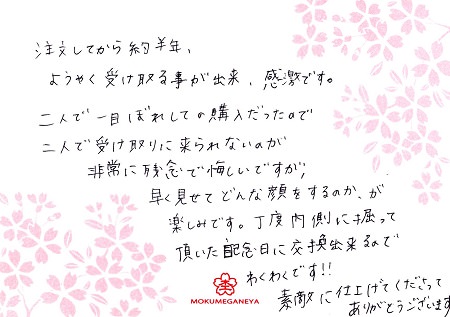 注文してから約半年、
ようやく受け取る事が出来、感激です。
二人で一目ぼれしての購入だったので
二人で受け取りに来られないのが
非常に残念で悔しいですが、
早く見せてどんな顔をするのか、が
楽しみです。丁度内側に掘って
頂いた記念日に交換出来るので
わくわくです!!
素敵に仕上げてくださって
ありがとうございます
MOKUMEGANEYA